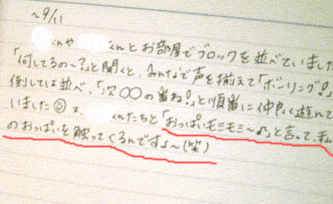 ~9/11
くんや くんとお部屋でブロックを並べていました
「何してるの~?」と聞くと、みんなで声を揃えて「ボーリング!」
倒しては並べ、「次〇〇の番ね!」と順番に仲良く遊んで
いました☺ 又、 くんたちと「おっぱいモミモミ~♪」と言って、私
のおっぱいを触ってくるんですよ~(笑)